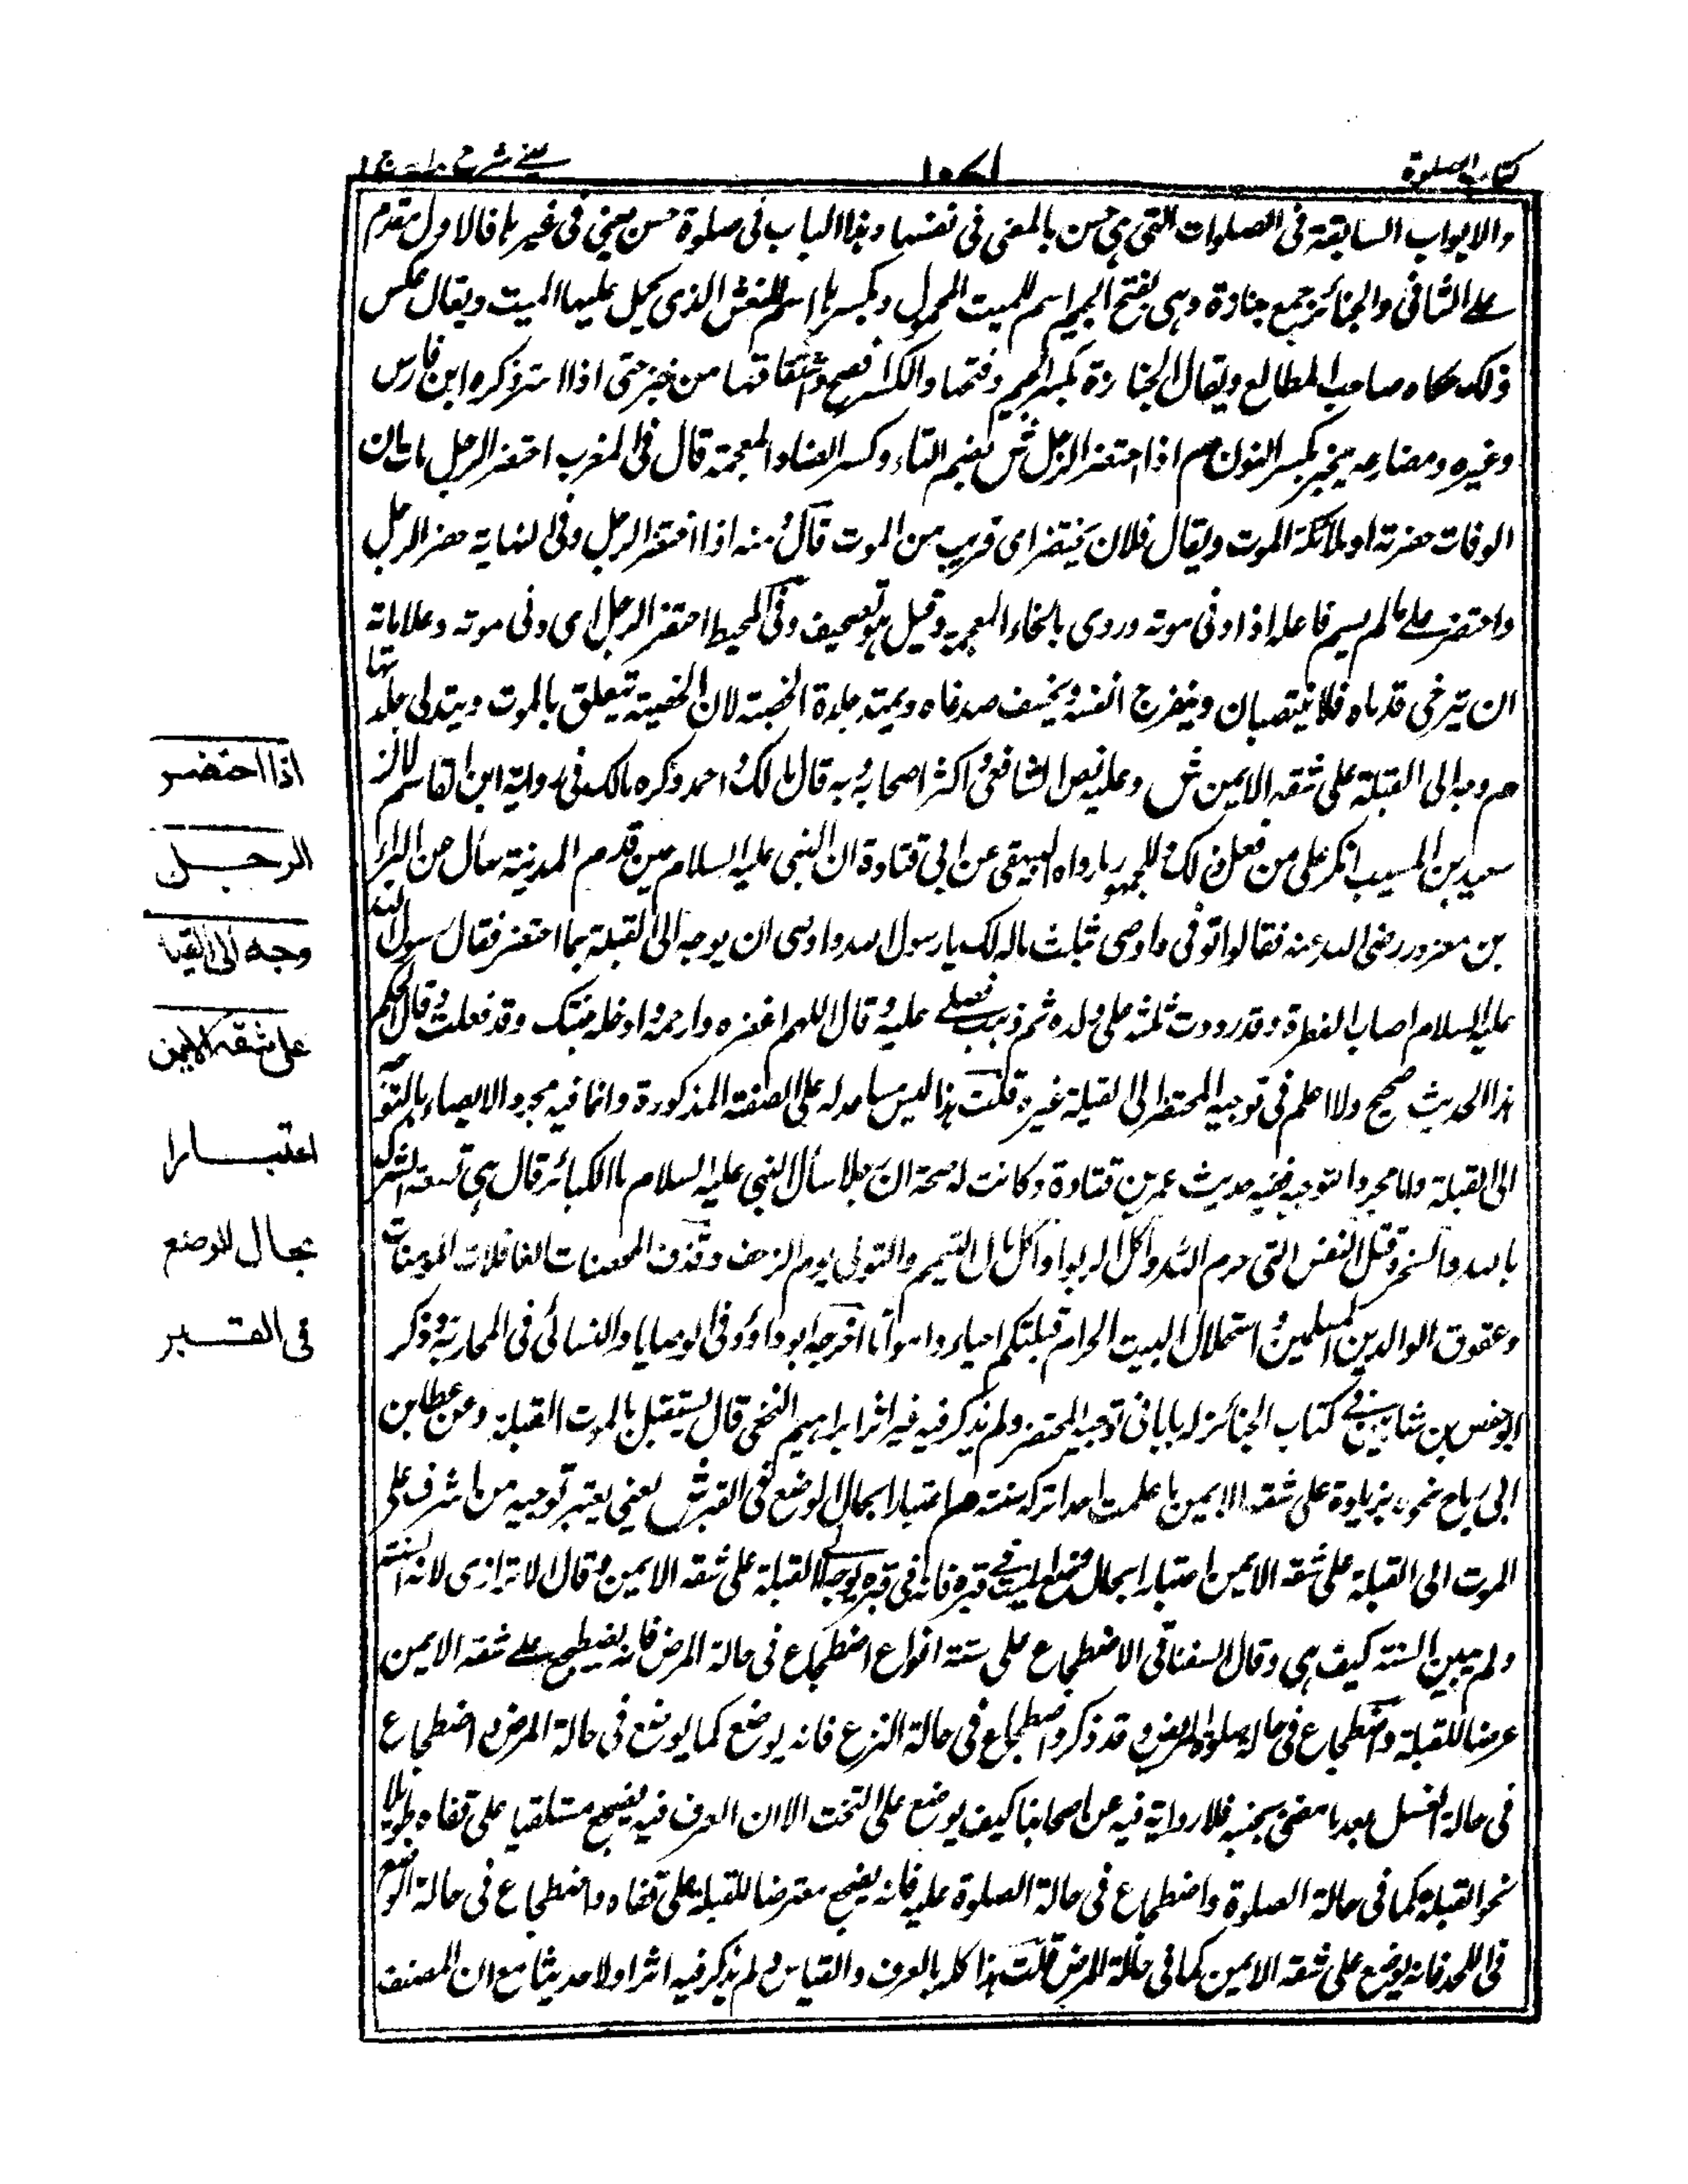 كتاب الصلوة
١٠٤١
عينى شرح هدايه ج ١
والابواب السابقة فى الصلوات التى هى حسن بالمعنى فى نفسها وهذا الباب فى صلوة حسن بمعنى فى غيرها فالاول مقدم
على الثانى والجنائز جمع جنازة وهى بفتح الجيم اسم للميت المحمول وبكسرها اسم للنعش الذى يحمل عليها الميت ويقال عكس
ذلك حكاه صاحب المطالع ويقال الجنازة بكسر الجيم وفتحها والكسر افصح واشتقاقها من جنز حتى اذا استر ذكره ابن فارس
وغيره ومضارعه يجنز بكسر النون م اذا احتضر الرجل ش بضم التاء وكسر الضاد المعجمة قال فى المغرب احتضر الرجل مات لان
الوفات حضرته او ملائكة الموت ويقال فلان يحتضر اى قريب من الموت قال ومنه اذا احتضر الرجل وفى النهاية حضر الرجل
واحتضر على ما لم يسم فاعله اذا دنى موته وروى بالخاء المعجمة وقيل هو تصحيف وفى المحيط احتضر الرجل اى دنى موته وعلاماته
ان يترخى قدماه فلا ينتصبان وينفرج انفه ويخسف صدغاه ويمتد جلدة الخصية لان الخصية تتعلق بالموت ويتدلى جلدتها
م وجه الى القبلة على شقه الايمن ش وعليه نص الشافعى واكثر اصحابه وبه قال مالك واحمد وذكره مالك فى رواية ابن القاسم لان
سعيد بن المسيب انكر على من فعل ذلك للجمهور ما رواه البيهقى عن ابى قتادة ان النبى عليه السلام حين قدم المدينة سأل عن البراء
بن معرور رضى الله عنه فقالوا توفى واوصى بثلث ماله لك يا رسول الله واوصى ان يوجه الى القبلة لما احتضر فقال رسول الله
عليه السلام اصاب الفطرة وقد رددت ثلثه على ولده ثم ذهب فصلى عليه وقال اللهم اغفره وارحمه وادخله جنتك وقد فعلت وقال الحاكم
هذا الحديث صحيح ولا اعلم فى توجيه المحتضر الى القبلة غيره قلت هذا ليس مساعد له على الصفة المذكورة وانما فيه مجرد الايصاء بالتوجه
الى القبلة واما مجرد التوجيه ففيه حديث عمير بن قتادة وكانت له صحة ان رجلا سأل النبى عليه السلام ما الكبائر قال هى تسعة الشرك
بالله والسحر وقتل النفس التى حرم الله واكل الربوا واكل مال اليتيم والتولى يوم الزحف وقذف المحصنات الغافلات المؤمنات
وعقوق الوالدين المسلمين واستحلال البيت الحرام قبلتكم احياء وامواتا اخرجه ابو داؤد فى الوصايا والنسائى فى المحاربة وذكر
ابو حفص بن شاهين فى كتاب الجنائز له بابا فى توجيه المحتضر ولم يذكر فيه غير اثر ابراهيم النخعى قال يستقبل بالموت القبلة وعن عطا بن
ابى رباح نحوه بزيادة على شقه الايمن ما علمت احدا تركه سنته م اعتبارا بحال الوضع فى القبر ش يعنى يعتبر توجيه من اشرف على
الموت الى القبلة على شقه الايمن اعتبارا بحال وضع الميت فى قبره فانه فى قبره يوجه الى القبلة على شقه الايمن وقال الاترازى لانه السنة
ولم يبين السنة كيف هى وقال السغناقى الاضطجاع على ستة انواع اضطجاع فى حالة المرض فانه يضطجع على شقه الايمن
عرضا للقبلة واضطجاع فى حالة صلوة المريض وقد ذكر واضطجاع فى حالة النزع فانه يوضع كما يوضع فى حالة المرض واضطجاع
فى حالة الغسل بعد ما مضى نحبه فلا رواية فيه عن اصحابنا كيف يوضع على التخت الا ان العرف فيه يضجع مستلقيا على قفاه طويلا
نحو القبلة كما فى حالة الصلوة واضطجاع فى حالة الصلوة عليه فانه يضجع معترضا للقبلة على قفاه واضطجاع فى حالة الوضع
فى اللحد فانه يوضع على شقه الايمن كما فى حالة المرض قلت هذا كله بالعرف والقياس ولم يذكر فيه اثرا ولا حديثا مع ان المصنف
اذا احتضر
الرجل
وجه الى القبلة
على شقه الايمن
اعتبارا
بحال الوضع
فى القبر